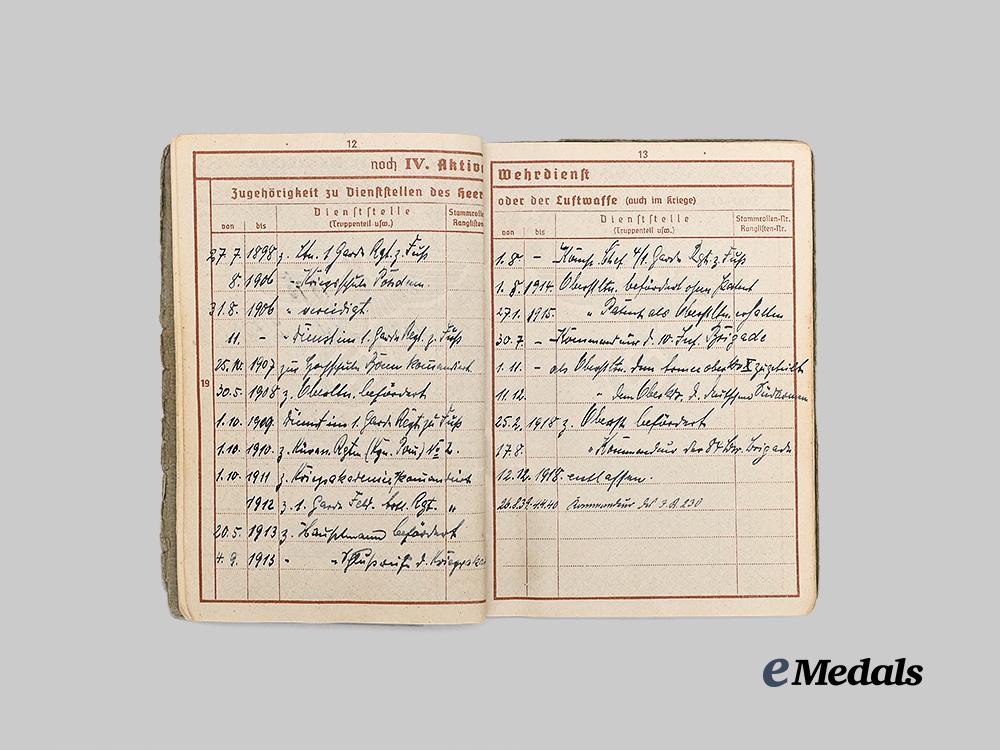 12
noch IV. Aktiv
Zugehörigkeit zu Dienststellen des Heer
von bis Dienststelle (Truppenteil usw.) Stammrolle Ranglisten-Nr.
19
27.7. 1895 z. Ltn. 1 Garde Rgt. z. Fuß
8. 1906 " Kriegsschule Potsdam
31.8. 1906 " vereidigt.
11. - " Dienst im 1. Garde Regt. z. Fuß
25. 1907 zur kommandiert
30.5. 1908 z. Oberltn. befördert
1.10. 1909. Dienst im 1. Garde Regt. zu Fuß
1.10. 1910. z. Küras. Rgtm. (Kgn. Pom) No 2.
1.10. 1911 z. Kriegsakademie kommandiert
1912 z. 1. Garde Feld Rgt. "
20.5. 1913 z. Hauptmann befördert
4. 9. 1913 " " d. Kriegsakad
13
Wehrdienst
oder der Luftwaffe (auch im Kriege)
von bis Dienststelle (Truppenteil usw.) Stammrollen-Nr. Ranglisten-Nr.
1.8. - Komp. Chef 4/1. Garde Rgt. z. Fuß
1. 8. 1914. Oberstltn. befördert ohne Patent
27.1. 1915. " Patent als Oberstltn. erhalten
30.7. - Kommandeur d. 10. Inf. Brigade
1.11. - als Oberstltn. dem X zugeteilt
11.12. " dem Oberkdo. d. deutschen
25.2. 1918 z. Oberst befördert
17.8. " Kommandeur der 84 Brigade
12.12. 1918. entlassen.
26.8.39-1.4.40 Kommandeur des J.R. 230
eMedals